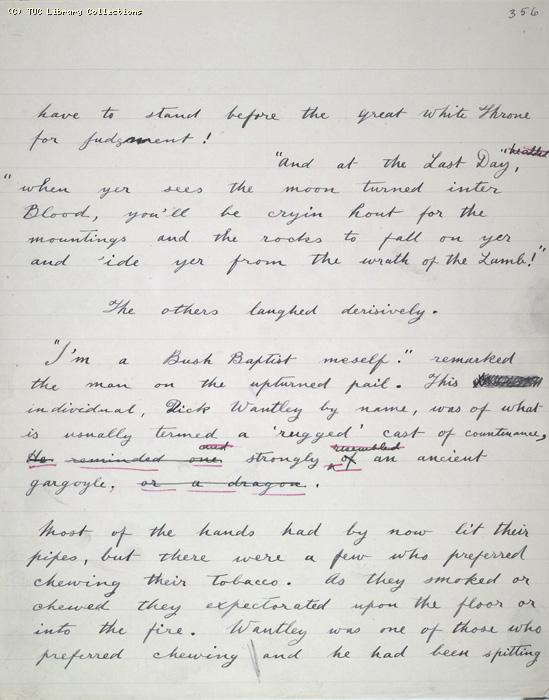 (C) TUC Library Collections
356
have to stand before the great white Throne
for judgment!
"And at the Last Day,
"when yer sees the moon turned inter
Blood, you'll be cryin hout for the
mountings and the rocks to fall on yer
and 'ide yer from the wrath of the Lamb!"
The others laughed derisively.
"I'm a Bush Baptist meself." remarked
the man on the upturned pail. This
individual, Dick Wantley by name, was of what
is usually termed a 'rugged' cast of countenance,
and resembled
He reminded one strongly of an ancient
gargoyle, or a dragon.
Most of the hands had by now lit their
pipes, but there were a few who preferred
chewing their tobacco. As they smoked or
chewed they expectorated upon the floor or
into the fire. Wantley was one of those who
preferred chewing and he had been spitting